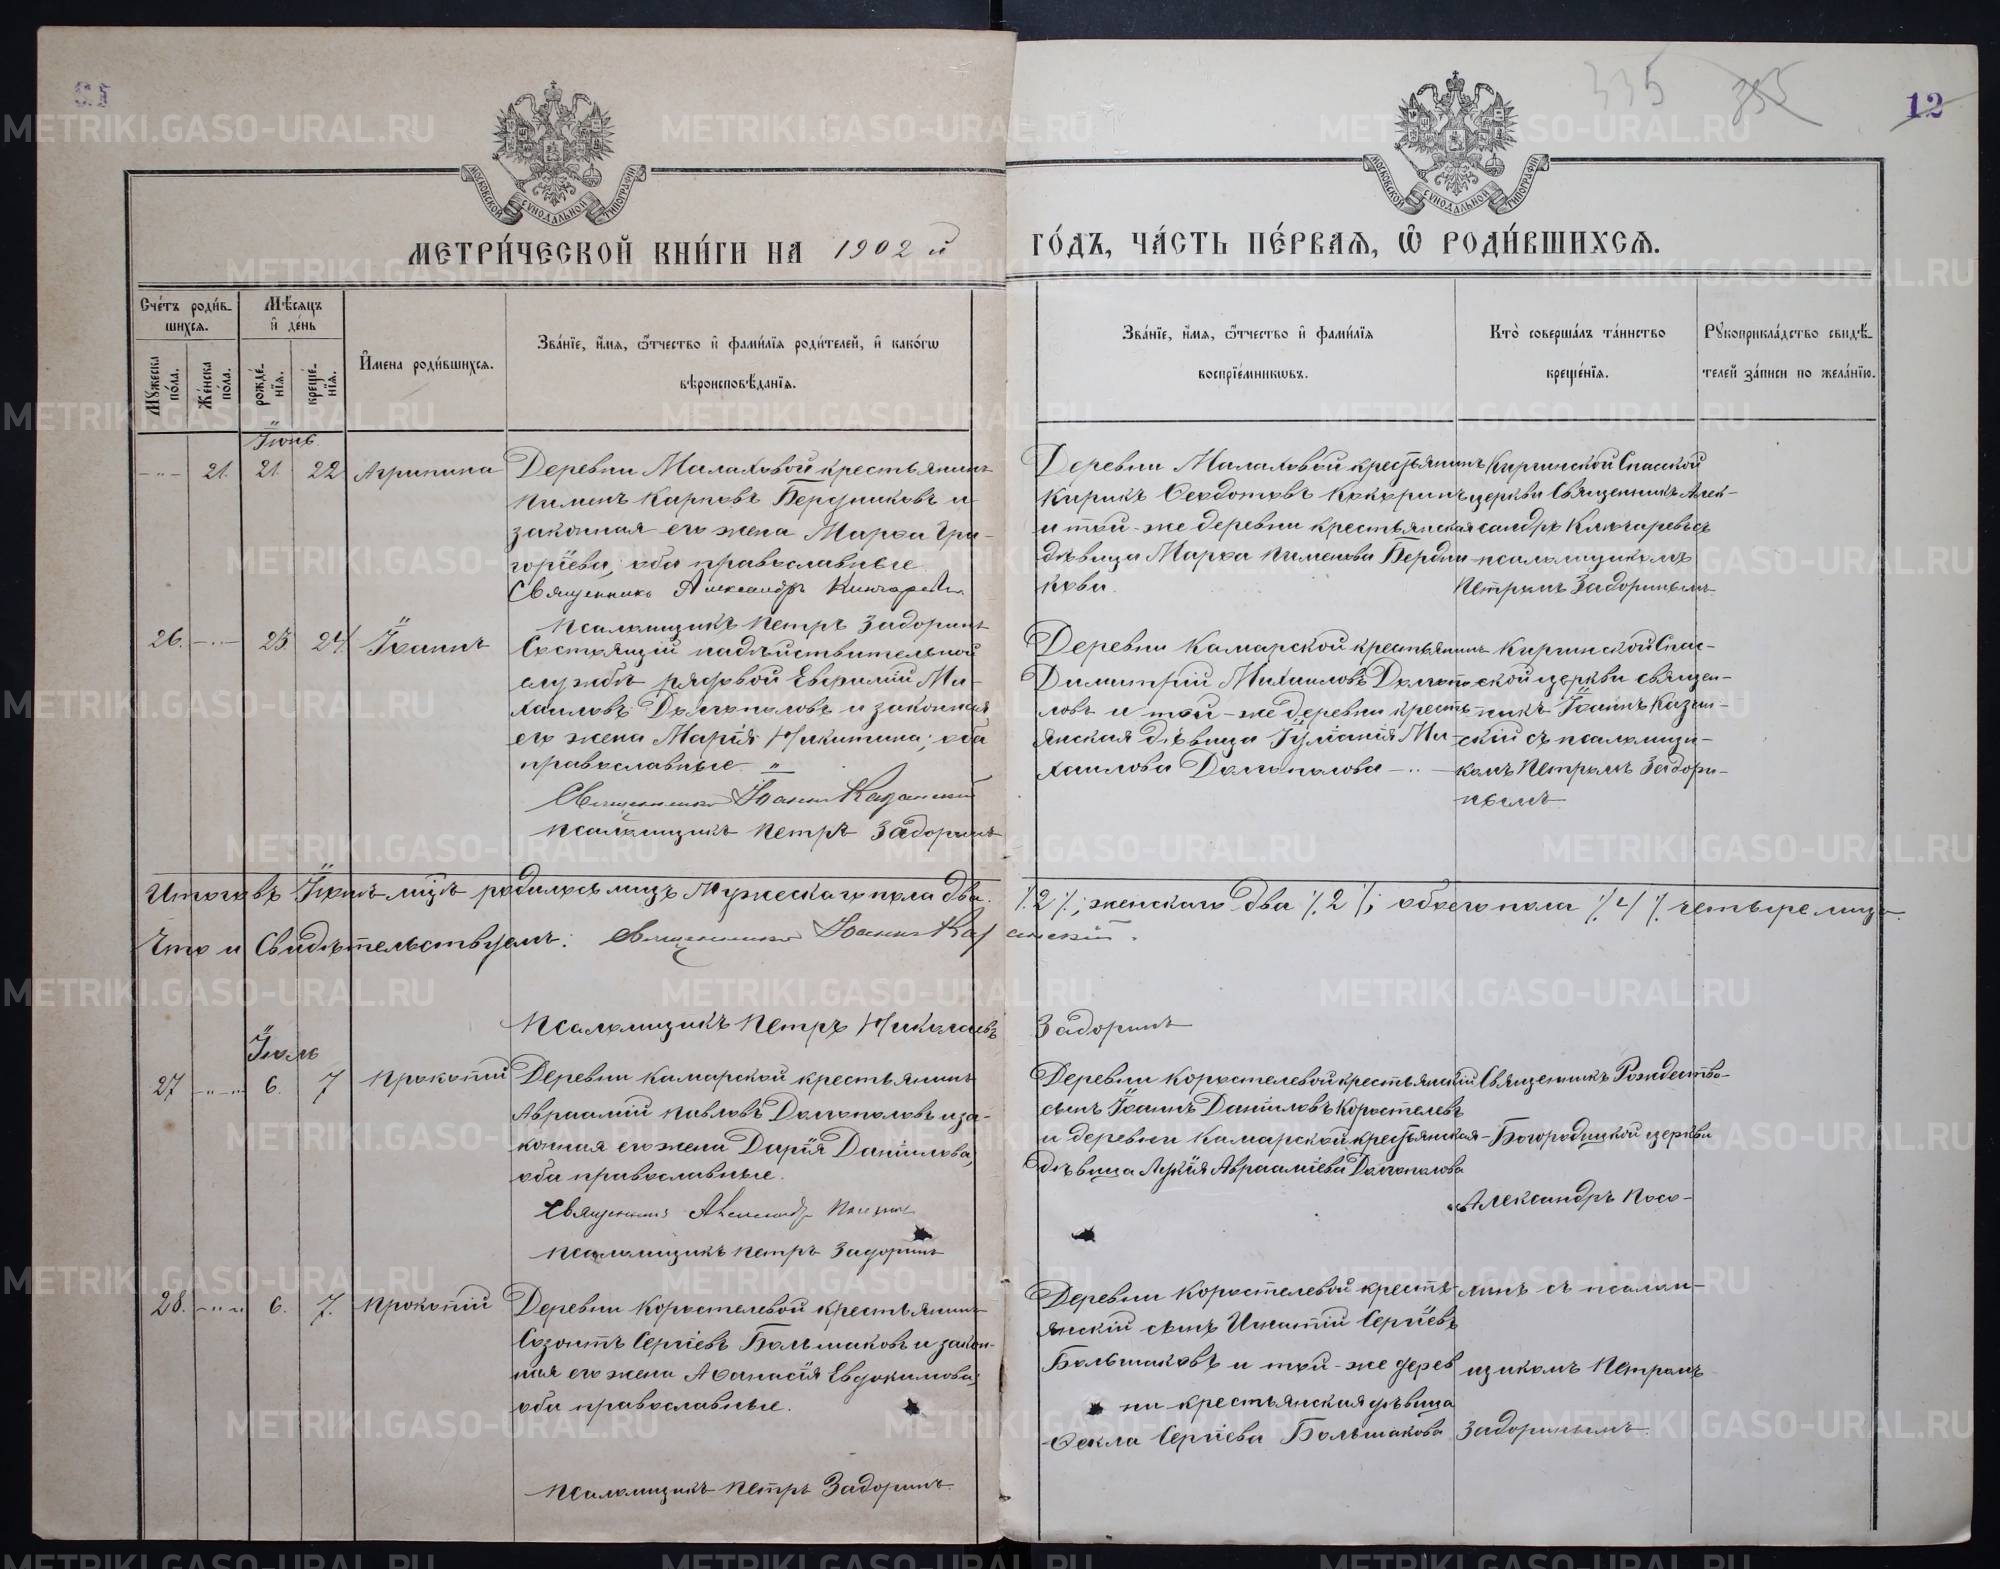 335
12
МОСКОВСКОЙ СѴНОДАЛЬНОЙ ТИПОГРАФІИ
МОСКОВСКОЙ СѴНОДАЛЬНОЙ ТИПОГРАФІИ
МЕТРИ́ЧЕСКОЙ КНИ́ГИ НА 1902 й
ГО́ДЪ, ЧА́СТЬ ПЕ́РВАѦ, Ѿ РОДИ́ВШИХСѦ.
Сче́тъ роди́в-
шихсѧ.
Мꙋжеска по́ла.
Же́нска по́ла.
Мѣ́сѧцъ
и҆ де́нь
рожде́-
нїѧ.
креще́-
нїѧ.
И҆мена роди́вшихсѧ.
Зва́нїе, и҆́мѧ, ѿтчество и҆ фами́лїѧ роди́телей, и҆ како́гѡ
вѣроисповѣ́данїѧ.
Зва́нїе, и҆́мѧ, ѿтчество и҆ фами́лїѧ
воспрїе́мникѡвъ.
Кто̀ соверша́лъ та́инство
креще́нїѧ.
Рꙋкоприкла́дство свидѣ́-
телей за́писи по жела́нїю.
Іюнь
21. 21. 22 Агрипина
Деревни Малаховой крестьянинъ
Пименъ Карповъ Бердниковъ и
законная его жена Марѳа Гри-
горіева, оба православные.
Священникъ Александръ Ключаревъ
Псаломщикъ Петръ Задоринъ
Деревни Малаховой крестьянинъ
Кирикъ Ѳеодотовъ Кокоринъ
и той-же деревни крестьянская
дѣвица Марѳа Пименова Бердни-
кова.
Киргинской Спасской
церкви Священникъ Алек-
сандръ Ключаревъ съ
псаломщикомъ
Петромъ Задоринымъ
26. 23. 24. Іоаннъ
Состоящій на дѣйствительной
службѣ рядовой Евѳимій Ми-
хаиловъ Долгополовъ и законная
его жена Марія Никитина; оба
православные.
Священникъ Іоаннъ Казанскій
Псаломщикъ Петръ Задоринъ
Деревни Камарской крестьянинъ
Димитрій Михаиловъ Долгопо-
ловъ и той-же деревни кресть-
янская дѣвица Іуліанія Ми-
хаилова Долгополова
Киргинской Спас-
ской церкви священ-
никъ Іоаннъ Казан-
скій съ псаломщи-
комъ Петромъ Задори-
нымъ
Итого въ Іюнѣ мцѣ родилось лицъ Мужескаго пола два ./.2./.; женскаго два ./.2./.; обоего пола ./.4./. четыре лица.
Что и Свидѣтельствуемъ: Священникъ Іоаннъ Казанскій.
Псаломщикъ Петръ Николаевъ Задоринъ
Іюль
27 6. 7 Прокопій
Деревни Камарской крестьянинъ
Авраамій Павловъ Долгополовъ и за-
конная его жена Дарія Даніилова,
оба православные.
Священникъ Александръ
Псаломщикъ Петръ Задоринъ
Деревни Коростелевой крестьянскій
сынъ Іоаннъ Даніиловъ Коростелевъ
и деревни Камарской крестьянская
дѣвица Лукія Авраамiева Долгополова
Священникъ Рождество-
Богородицкой церкви
Александръ Носо-
28. 6. 7. Прокопій
Деревни Коростелевой крестьянинъ
Созонтъ Сергіевъ Большаковъ и закон-
ная его жена Аѳанасія Евдокимова;
оба православные.
Псаломщикъ Петръ Задоринъ
Деревни Коростелевой кресть-
янскій сынъ Игнатій Сергіевъ
Большаковъ и той-же дерев
ни крестьянская дѣвица
Ѳекла Сергіева Большакова
линъ съ псалом-
щикомъ Петромъ
Задоринымъ